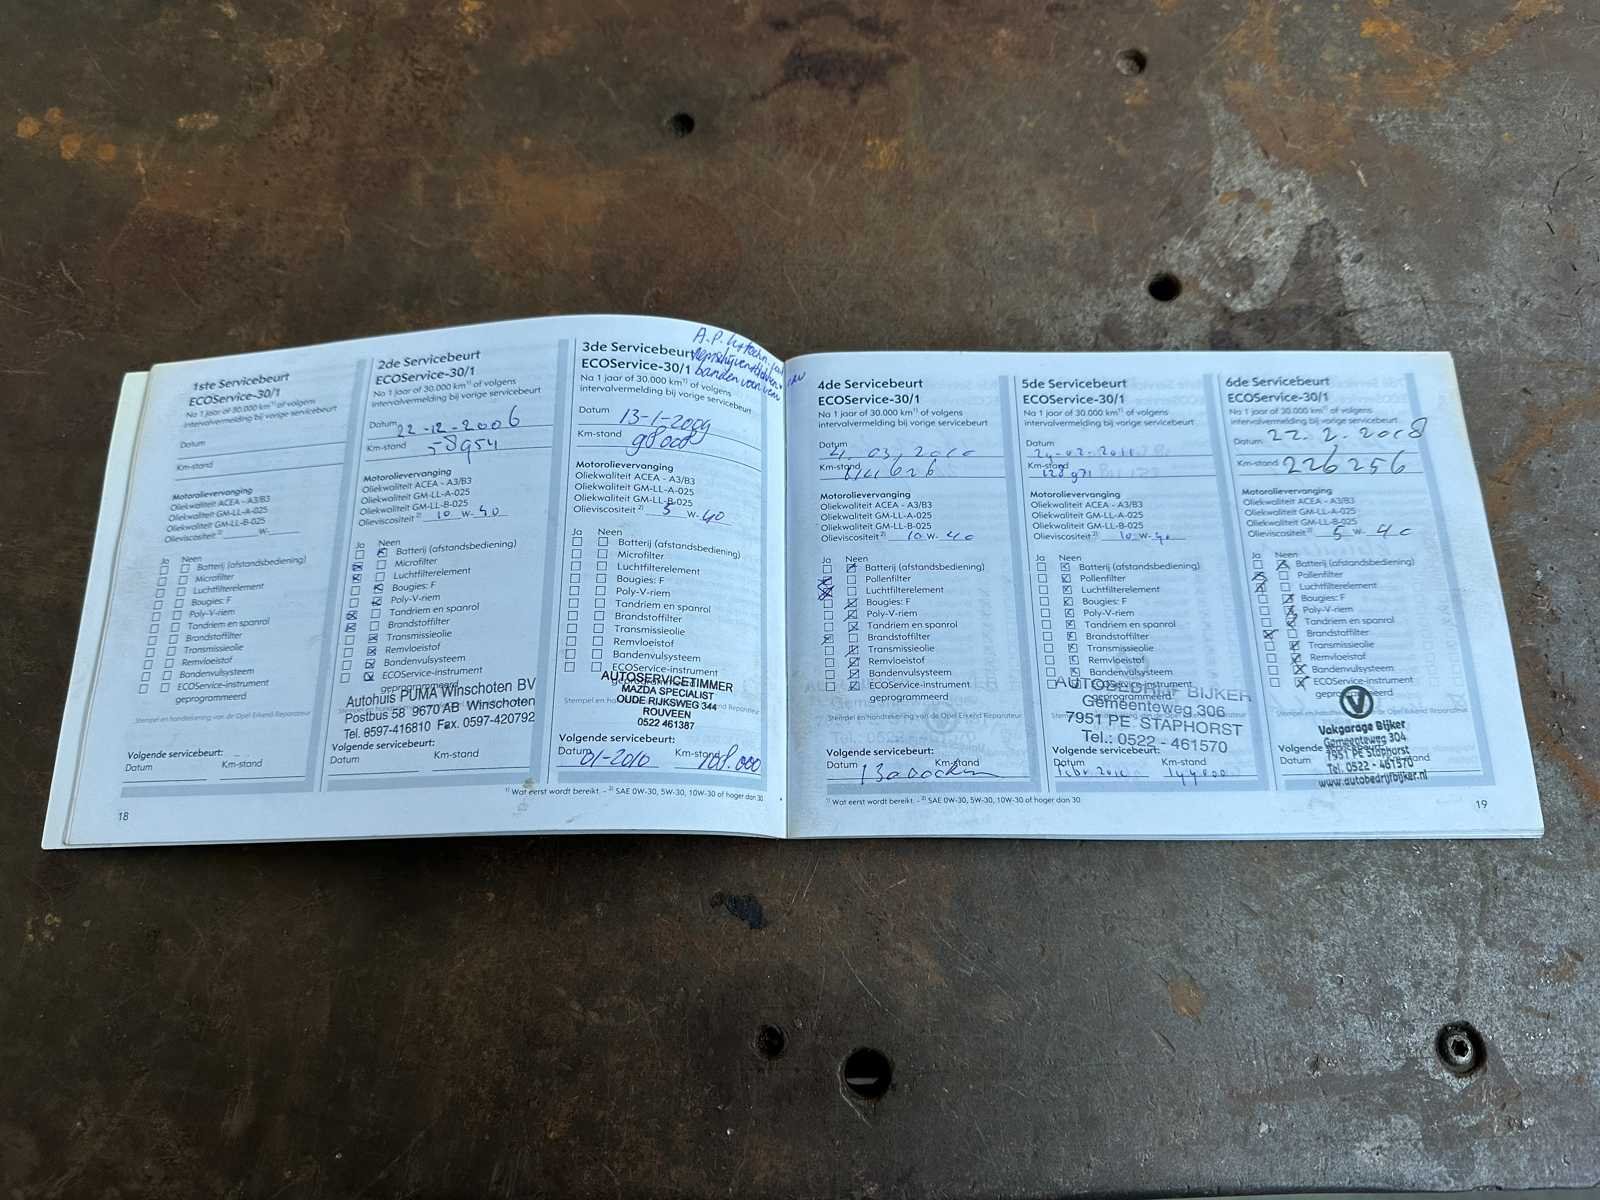 1ste Servicebeurt
ECOService-30/1
Na 1 jaar of 30.000 km¹⁾ of volgens
intervalvermelding bij vorige servicebeurt
Datum
Km-stand
Motorolievervanging
Oliekwaliteit ACEA - A3/B3
Oliekwaliteit GM-LL-A-025
Oliekwaliteit GM-LL-B-025
Olieviscositeit ²⁾ W-
Ja Neen
Batterij (afstandsbediening)
Microfilter
Luchtfilterelement
Bougies: F
Poly-V-riem
Tandriem en spanrol
Brandstoffilter
Transmissieolie
Remvloeistof
Bandenvulsysteem
ECOService-instrument
geprogrammeerd
Stempel en handtekening van de Opel Erkend Reparateur
Volgende servicebeurt:
Datum Km-stand
18
2de Servicebeurt
ECOService-30/1
Na 1 jaar of 30.000 km¹⁾ of volgens
intervalvermelding bij vorige servicebeurt
Datum 22-12-2006
Km-stand 58954
Motorolievervanging
Oliekwaliteit ACEA - A3/B3
Oliekwaliteit GM-LL-A-025
Oliekwaliteit GM-LL-B-025
Olieviscositeit ²⁾ 10 W- 40
Ja Neen
Batterij (afstandsbediening)
Microfilter
Luchtfilterelement
Bougies: F
Poly-V-riem
Tandriem en spanrol
Brandstoffilter
Transmissieolie
Remvloeistof
Bandenvulsysteem
ECOService-instrument
geprogrammeerd
Autohuis PUMA Winschoten BV
Postbus 58 9670 AB Winschoten
Tel. 0597-416810 Fax. 0597-420792
Volgende servicebeurt:
Datum Km-stand
3de Servicebeurt
ECOService-30/1
A.P.K
banden voor
Na 1 jaar of 30.000 km¹⁾ of volgens
intervalvermelding bij vorige servicebeurt
Datum 13-1-2009
Km-stand 98000
Motorolievervanging
Oliekwaliteit ACEA - A3/B3
Oliekwaliteit GM-LL-A-025
Oliekwaliteit GM-LL-B-025
Olieviscositeit ²⁾ 5 W- 40
Ja Neen
Batterij (afstandsbediening)
Microfilter
Luchtfilterelement
Bougies: F
Poly-V-riem
Tandriem en spanrol
Brandstoffilter
Transmissieolie
Remvloeistof
Bandenvulsysteem
ECOService-instrument
AUTOSERVICE TIMMER
MAZDA SPECIALIST
OUDE RIJKSWEG 344
ROUVEEN
0522 461387
Volgende servicebeurt:
Datum 01-2010 Km-stand 108.000
¹⁾ Wat eerst wordt bereikt. - ²⁾ SAE 0W-30, 5W-30, 10W-30 of hoger dan 30
4de Servicebeurt
ECOService-30/1
Na 1 jaar of 30.000 km¹⁾ of volgens
intervalvermelding bij vorige servicebeurt
Datum 03, 2010
Km-stand
Motorolievervanging
Oliekwaliteit ACEA - A3/B3
Oliekwaliteit GM-LL-A-025
Oliekwaliteit GM-LL-B-025
Olieviscositeit ²⁾ 10 W- 40
Ja Neen
Batterij (afstandsbediening)
Pollenfilter
Luchtfilterelement
Bougies: F
Poly-V-riem
Tandriem en spanrol
Brandstoffilter
Transmissieolie
Remvloeistof
Bandenvulsysteem
ECOService-instrument
geprogrammeerd
Stempel en handtekening van de Opel Erkend Reparateur
Volgende servicebeurt:
Datum Km-stand
130000km
¹⁾ Wat eerst wordt bereikt. - ²⁾ SAE 0W-30, 5W-30, 10W-30 of hoger dan 30
5de Servicebeurt
ECOService-30/1
Na 1 jaar of 30.000 km¹⁾ of volgens
intervalvermelding bij vorige servicebeurt
Datum 24-02-2011
Km-stand 128971
Motorolievervanging
Oliekwaliteit ACEA - A3/B3
Oliekwaliteit GM-LL-A-025
Oliekwaliteit GM-LL-B-025
Olieviscositeit ²⁾ 10 W- 40
Ja Neen
Batterij (afstandsbediening)
Pollenfilter
Luchtfilterelement
Bougies: F
Poly-V-riem
Tandriem en spanrol
Brandstoffilter
Transmissieolie
Remvloeistof
Bandenvulsysteem
ECOService-instrument
geprogrammeerd
AUTOBEDRIJF BIJKER
Gemeenteweg 306
7951 PE STAPHORST
Tel.: 0522 - 461570
Volgende servicebeurt:
Datum Km-stand
6de Servicebeurt
ECOService-30/1
Na 1 jaar of 30.000 km¹⁾ of volgens
intervalvermelding bij vorige servicebeurt
Datum 22.2.2018
Km-stand 226256
Motorolievervanging
Oliekwaliteit ACEA - A3/B3
Oliekwaliteit GM-LL-A-025
Oliekwaliteit GM-LL-B-025
Olieviscositeit ²⁾ 5 W- 40
Ja Neen
Batterij (afstandsbediening)
Pollenfilter
Luchtfilterelement
Bougies: F
Poly-V-riem
Tandriem en spanrol
Brandstoffilter
Transmissieolie
Remvloeistof
Bandenvulsysteem
ECOService-instrument
geprogrammeerd
V
Vakgarage Bijker
Gemeenteweg 304
7951 PE Staphorst
Tel. 0522 - 461570
www.autobedrijfbijker.nl
Volgende
Datum
19